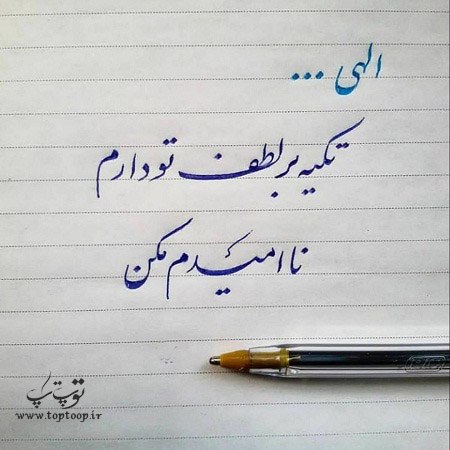 الهی ...
تکیه بر لطف تو دارم
نا امیدم مکن
توپ تاپ
www.toptoop.ir